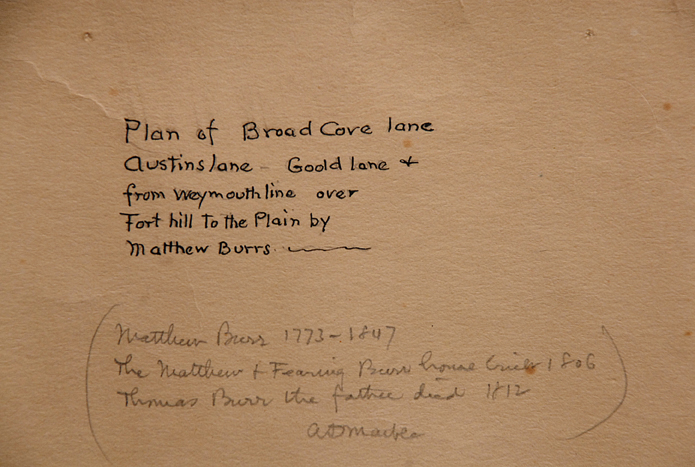 Plan of Broad Cove lane
Austins lane - Goold lane &
from weymouth line over
Fort hill To the Plain by
Matthew Burrs
(Matthew Burr 1773-1847
The Matthew & Fearing Burr house built 1806
Thomas Burr the father died 1812)